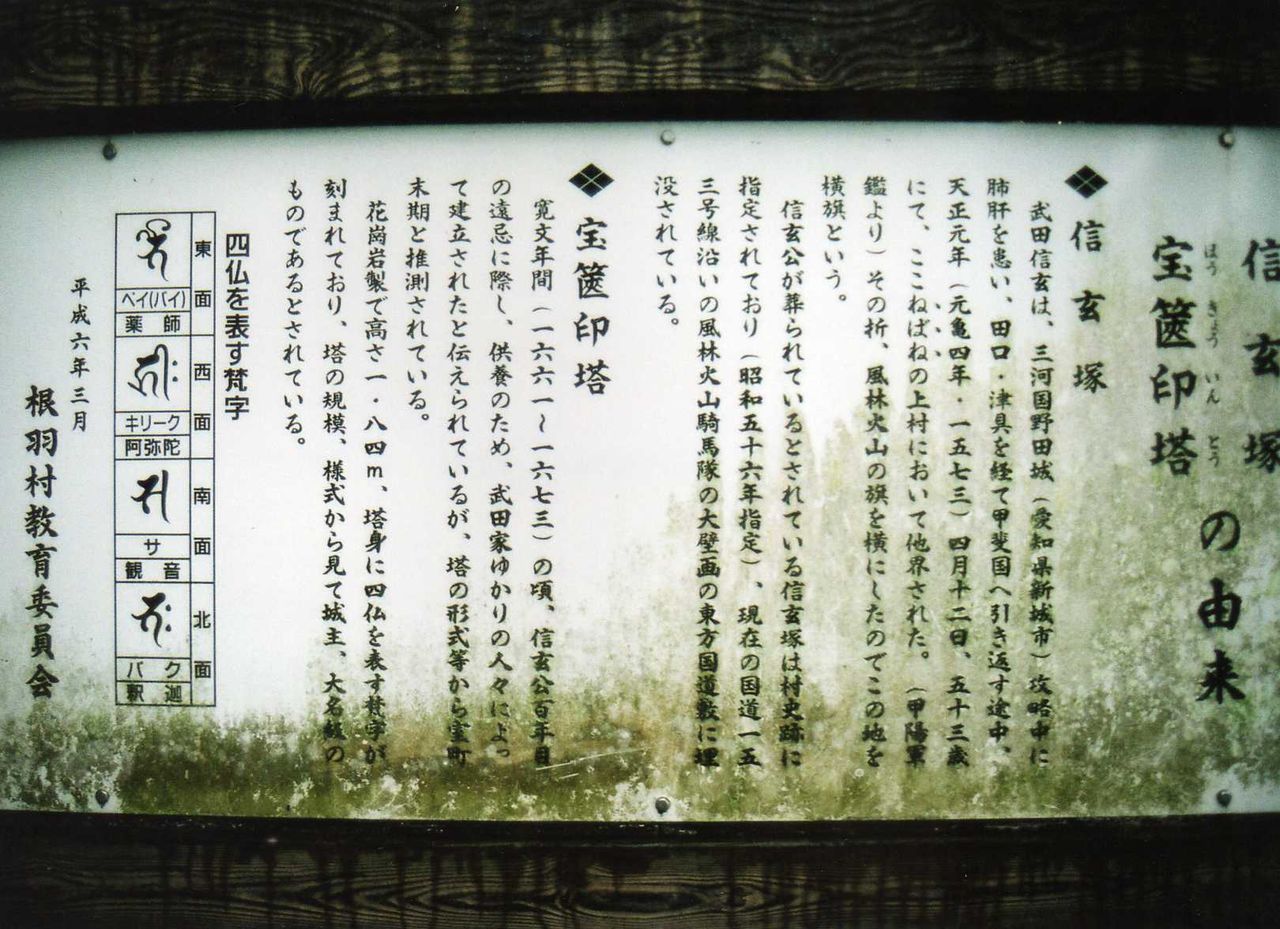 信玄塚
宝篋印塔
ほうきょういんとう
の由来
信玄塚
武田信玄は、三河国野田城（愛知県新城市）攻略中に
肺肝を患い、田口・津具を経て甲斐国へ引き返す途中、
天正元年（元亀四年・一五七三）四月十二日、五十三歳
にて、ここねばねの上村において他界された。（甲陽軍
鑑より）その折、風林火山の旗を横にしたのでこの地を
横旗という。
信玄公が葬られているとされている信玄塚は村史跡に
指定されており（昭和五十六年指定）、現在の国道一五
三号線沿いの風林火山騎馬隊の大壁画の東方国道敷に埋
没されている。
宝篋印塔
寛文年間（一六六一〜一六七三）の頃、信玄公百年目
の遠忌に際し、供養のため、武田家ゆかりの人々によっ
て建立されたと伝えられているが、塔の形式等から室町
末期と推測されている。
花崗岩製で高さ一・八四m、塔身に四仏を表す梵字が
刻まれており、塔の規模、様式から見て城主、大名級の
ものであるとされている。
四仏を表す梵字
東面
ベイ(バイ)
薬師
西面
キリーク
阿弥陀
南面
サ
観音
北面
バク
釈迦
平成六年三月
根羽村教育委員会